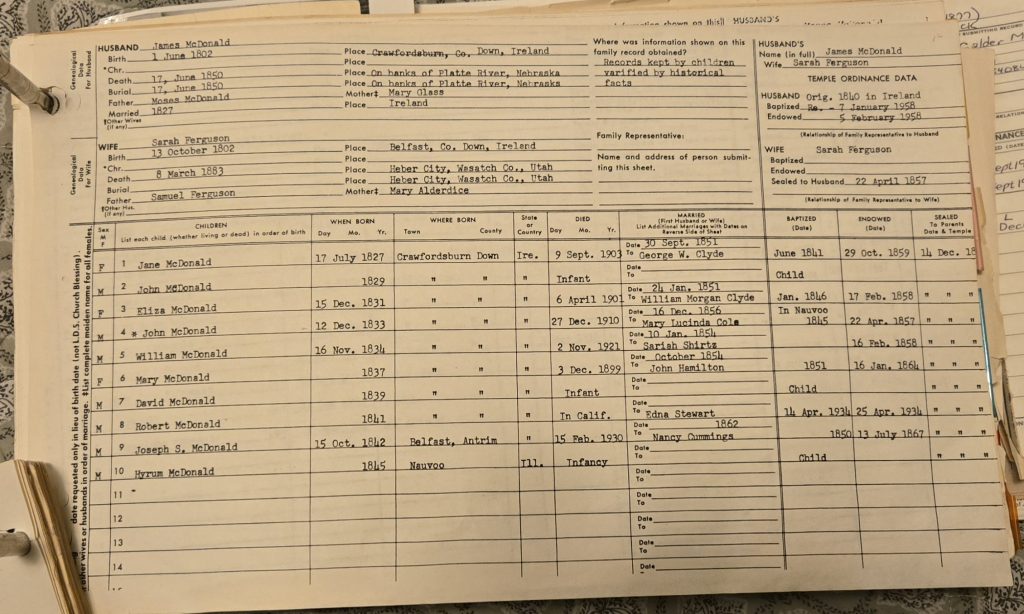 information shown on this HUSBAND'S
HUSBAND James McDonald
Birth 1 June 1802 Place Crawfordsburn, Co. Down, Ireland
*Chr. Place
Death 17, June 1850 Place On banks of Platte River, Nebraska
Burial 17, June 1850 Place On banks of Platte River, Nebraska
Father Moses McDonald Mother‡ Mary Glass
Married 1827 Place Ireland
‡Other Wives
(if any)
Genealogical Data for Husband
Where was information shown on this
family record obtained?
Records kept by children
varified by historical
facts
HUSBAND'S
Name (in full) James McDonald
Wife Sarah Ferguson
TEMPLE ORDINANCE DATA
HUSBAND Orig. 1840 in Ireland
Baptized Re. - 7 January 1958
Endowed 5 February 1958
(Relationship of Family Representative to Husband
WIFE Sarah Ferguson
Birth 13 October 1802 Place Belfast, Co. Down, Ireland
*Chr. Place
Death 8 March 1883 Place Heber City, Wasatch Co., Utah
Burial Place Heber City, Wasatch Co., Utah
Father Samuel Ferguson Mother‡ Mary Alderdice
‡Other Hus.
(if any)
Genealogical Data for Wife
Family Representative:
Name and address of person submit-
ting this sheet.
WIFE Sarah Ferguson
Baptized
Endowed
Sealed to Husband 22 April 1857
(Relationship of Family Representative to Wife)
Sex M F
CHILDREN
List each child (whether living or dead) in order of birth
WHEN BORN
Day Mo. Yr.
WHERE BORN
Town County
State or Country
DIED
Day Mo. Yr.
MARRIED
(First Husband or Wife)
List Additional Marriages with Dates on
Reverse Side of Sheet
BAPTIZED
(Date)
ENDOWED
(Date)
SEALED
To Parents
Date & Temple
F 1 Jane McDonald 17 July 1827 Crawfordsburn Down Ire. 9 Sept. 1903 Date 30 Sept. 1851 To George W. Clyde June 1841 29 Oct. 1859 14 Dec. 18
M 2 John McDonald 1829 " " " Infant Date To Child
F 3 Eliza McDonald 15 Dec. 1831 " " " 6 April 1901 Date 24 Jan. 1851 To William Morgan Clyde Jan. 1846 17 Feb. 1858 " " "
M 4 * John McDonald 12 Dec. 1833 " " " 27 Dec. 1910 Date 16 Dec. 1856 To Mary Lucinda Cole In Nauvoo 1845 22 Apr. 1857 " " "
M 5 William McDonald 16 Nov. 1834 " " " 2 Nov. 1921 Date 10 Jan. 1854 To Sariah Shirtz 16 Feb. 1858 " " "
F 6 Mary McDonald 1837 " " " 3 Dec. 1899 Date October 1854 To John Hamilton 1851 16 Jan. 1864 " " "
M 7 David McDonald 1839 " " " Infant Date To Child " " "
M 8 Robert McDonald 1841 " " " In Calif. Date To Edna Stewart 14 Apr. 1934 25 Apr. 1934 " " "
M 9 Joseph S. McDonald 15 Oct. 1842 Belfast, Antrim " 15 Feb. 1930 Date 1862 To Nancy Cummings 1850 13 July 1867 " " "
M 10 Hyrum McDonald 1845 Nauvoo Ill. Infancy Date To Child " " "
11 Date To
12 Date To
13 Date To
14 Date
date requested only in lieu of birth date (not L.D.S. Church Blessing).
other wives or husbands in order of marriage. ‡List complete maiden name for all females.